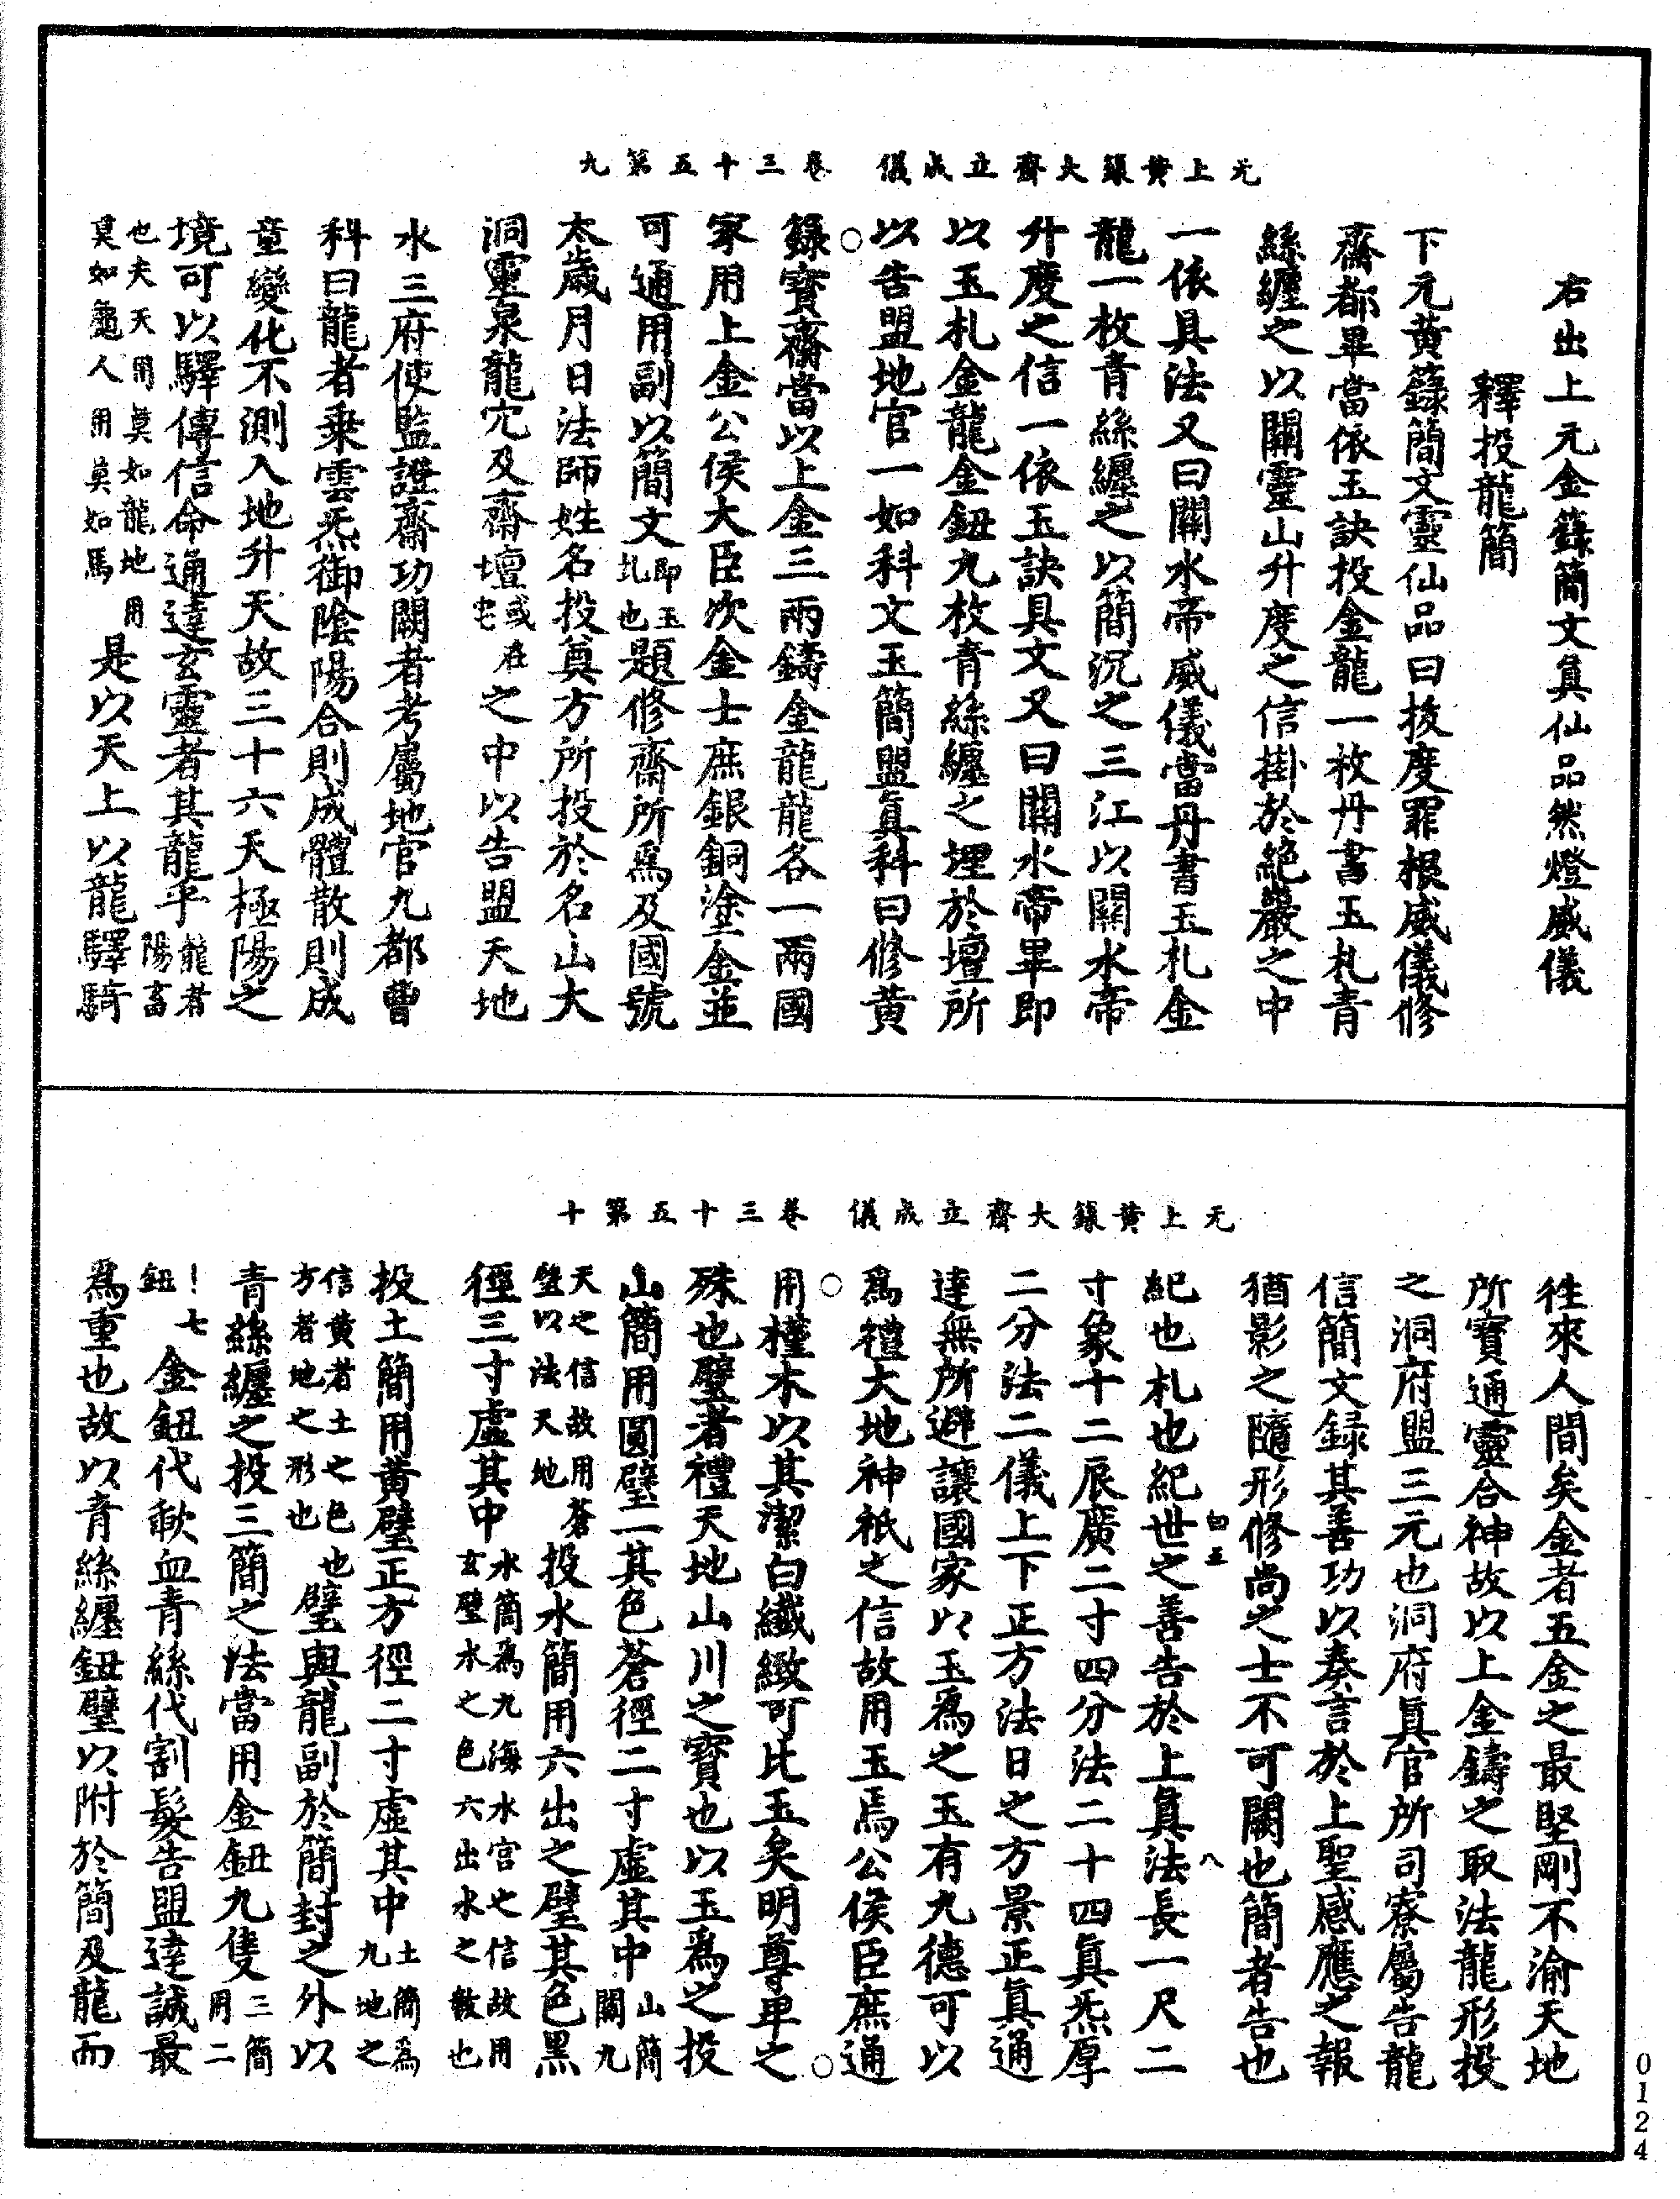 无上黃籙大齋立成儀　卷三十五第九
右出上元金籙簡文真仙品然燈威儀
釋投龍簡
下元黃籙簡文靈仙品曰拔度罪根威儀修
齋都畢當依玉訣投金龍一枚丹書玉札青
絲纏之以關靈山升度之信掛於絕巖之中
一依具法又曰關水帝威儀當丹書玉札金
龍一枚青絲纏之以簡沉之三江以關水帝
升度之信一依玉訣具文又曰關水帝畢即
以玉札金龍金鈕九枚青絲纏之埋於壇所
以告盟地官一如科文玉簡盟真科曰修黃
籙寶齋當以上金三兩鑄金龍龍各一兩國
家用上金公侯大臣次金士庶銀銅塗金並
可通用副以簡文即玉札也題修齋所為及國號
太歲月日法師姓名投奠方所投於名山大
洞靈泉龍穴及齋壇或在宅之中以告盟天地
水三府使監證齋功闕者考屬地官九都曹
科曰龍者乘雲炁御陰陽合則成體散則成
章變化不測入地升天故三十六天極陽之
境可以驛傳信命通達玄靈者其龍乎龍者陽畜
也夫天用莫如龍地用莫如龜人用莫如馬是以天上以龍驛騎
无上黃籙大齋立成儀　卷三十五第十
往來人間矣金者五金之最堅剛不渝天地
所寶通靈合神故以上金鑄之取法龍形投
之洞府盟三元也洞府真官所司寮屬告龍
信簡文録其善功以奏言於上聖感應之報
猶影之隨形修尚之士不可闕也簡者告也
紀也札也紀世之善告於上真法長一尺二
寸象十二辰廣二寸四分法二十四真炁厚
二分法二儀上下正方法日之方景正真通
達無所避讓國家以玉為之玉有九德可以
為禮大地神祇之信故用玉焉公侯臣庶通
用槿木以其潔白纖緻可比玉矣明尊卑之
殊也璧者禮天地山川之寶也以玉為之投
山簡用圓璧一其色蒼徑二寸虛其中山簡關九
天之信故用蒼璧以法天地投水簡用六出之璧其色黑
徑三寸虛其中水簡為九海水官之信故用玄璧水之色六出水之數也
投土簡用黃璧正方徑二寸虛其中土簡為九地之
信黃者土之色也方者地之形也璧與龍副於簡封之外以
青絲纏之投三簡之法當用金鈕九隻三簡用二
十七鈕金鈕代歃血青絲代割髮告盟達誠最
為重也故以青絲纏鈕璧以附於簡及龍而
0124